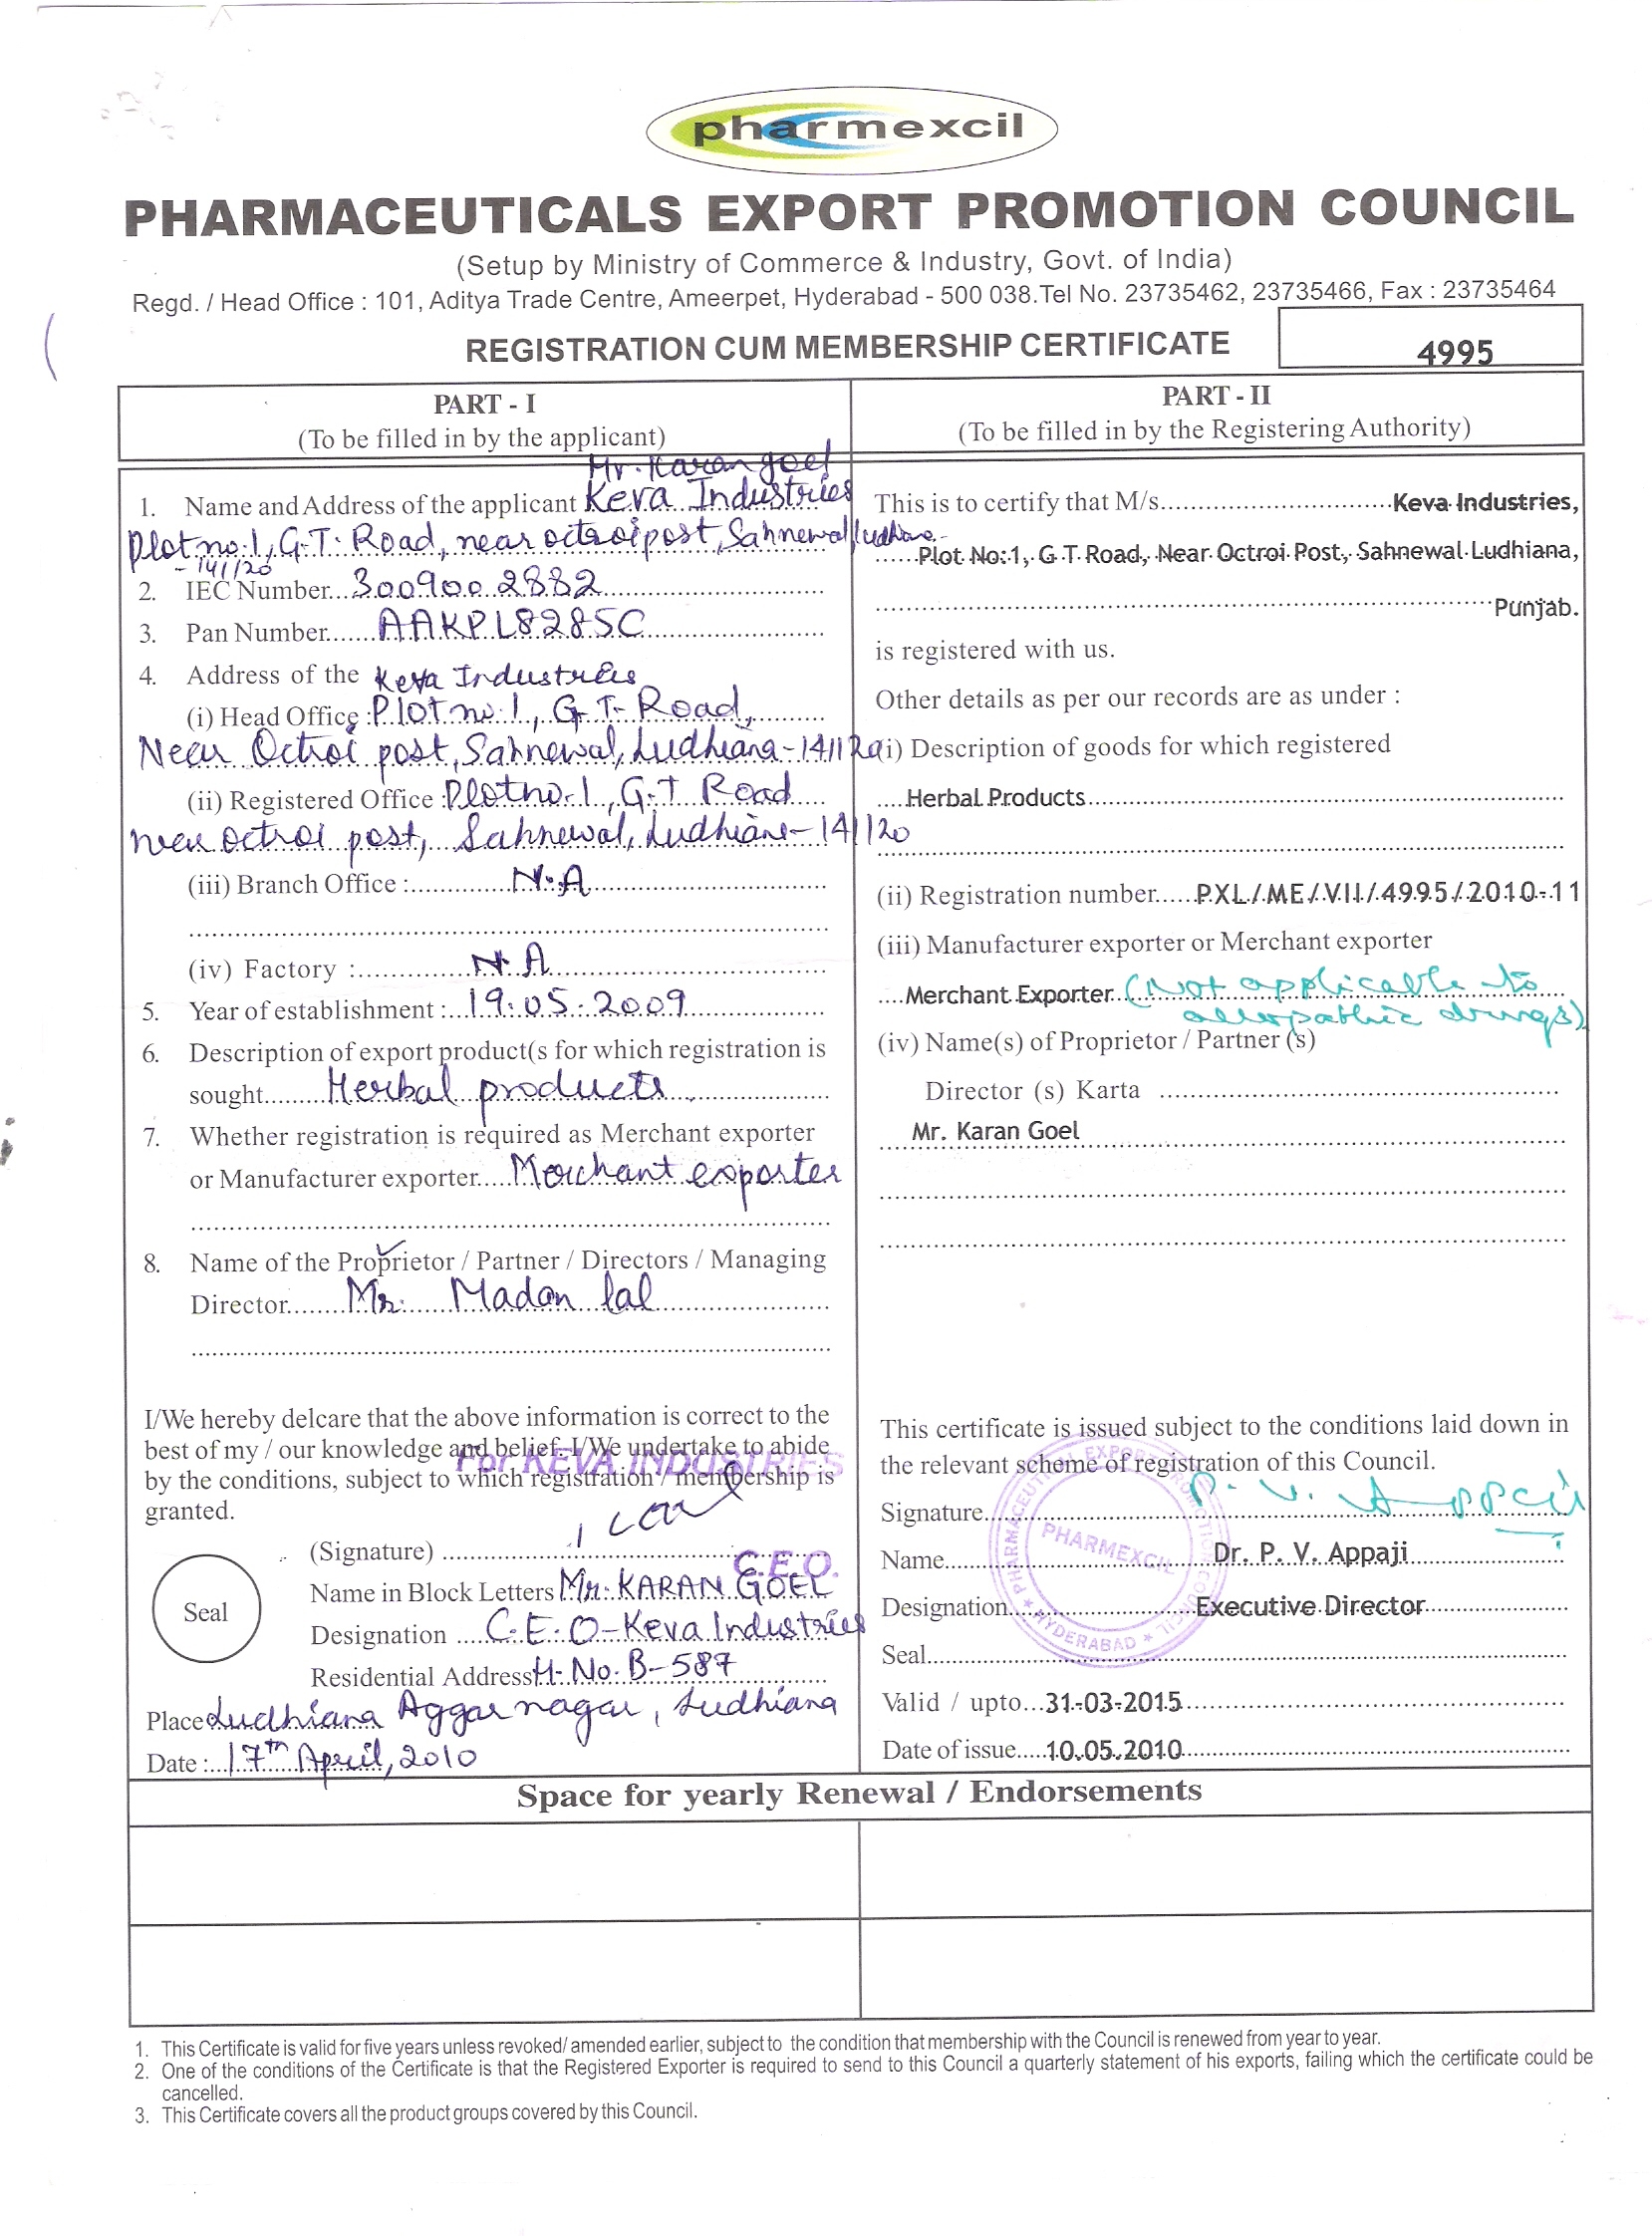 pharmexcil
PHARMACEUTICALS EXPORT PROMOTION COUNCIL
(Setup by Ministry of Commerce & Industry, Govt. of India)
Regd. / Head Office : 101, Aditya Trade Centre, Ameerpet, Hyderabad - 500 038.Tel No. 23735462, 23735466, Fax : 23735464
REGISTRATION CUM MEMBERSHIP CERTIFICATE
4995
PART - I
(To be filled in by the applicant)
Mr. Karan goel
1. Name and Address of the applicant Keva Industries
Plot no.1, G.T. Road, near octroi post, Sahnewal, Ludhiana-
141120
2. IEC Number...3009002882
3. Pan Number.......AAKPL8285C
4. Address of the Keva Industries
(i) Head Office : Plot no.1, G.T. Road,
Near Octroi post, Sahnewal, Ludhiana-141120
(ii) Registered Office : Plot no.1, G.T Road
near Octroi post, Sahnewal, Ludhiana-141120
(iii) Branch Office : N.A
(iv) Factory : N.A
5. Year of establishment : 19.05.2009
6. Description of export product(s for which registration is
sought......... Herbal products
7. Whether registration is required as Merchant exporter
or Manufacturer exporter..... Merchant exporter
8. Name of the Proprietor / Partner / Directors / Managing
Director........ Mr. Madan lal
I/We hereby delcare that the above information is correct to the
best of my / our knowledge and belief. I/We undertake to abide
by the conditions, subject to which registration / membership is
granted.
For KEVA INDUSTRIES
(Signature)
C.E.O.
Seal
Name in Block Letters Mr. KARAN GOEL
Designation C.E.O-Keva Industries
Residential Address H.No. B-587
Place Ludhiana Aggar nagar, Ludhiana
Date : 17th April, 2010
PART - II
(To be filled in by the Registering Authority)
This is to certify that M/s. Keva Industries,
Plot No:1, G.T.Road, Near Octroi Post, Sahnewal Ludhiana,
Punjab.
is registered with us.
Other details as per our records are as under :
(i) Description of goods for which registered
Herbal Products
(ii) Registration number......PXL/ME/VII/4995/2010-11
(iii) Manufacturer exporter or Merchant exporter
Merchant Exporter (Not applicable to
allopathic drugs)
(iv) Name(s) of Proprietor / Partner (s)
Director (s) Karta
Mr. Karan Goel
This certificate is issued subject to the conditions laid down in
the relevant scheme of registration of this Council.
Signature P. V. Appaji
Name Dr. P. V. Appaji
Designation Executive Director
Seal
PHARMACEUTICALS EXPORT PROMOTION COUNCIL
PHARMEXCIL
★ HYDERABAD ★
Valid / upto...31-03-2015
Date of issue.....10.05.2010
Space for yearly Renewal / Endorsements
1. This Certificate is valid for five years unless revoked/ amended earlier, subject to the condition that membership with the Council is renewed from year to year.
2. One of the conditions of the Certificate is that the Registered Exporter is required to send to this Council a quarterly statement of his exports, failing which the certificate could be
cancelled.
3. This Certificate covers all the product groups covered by this Council.